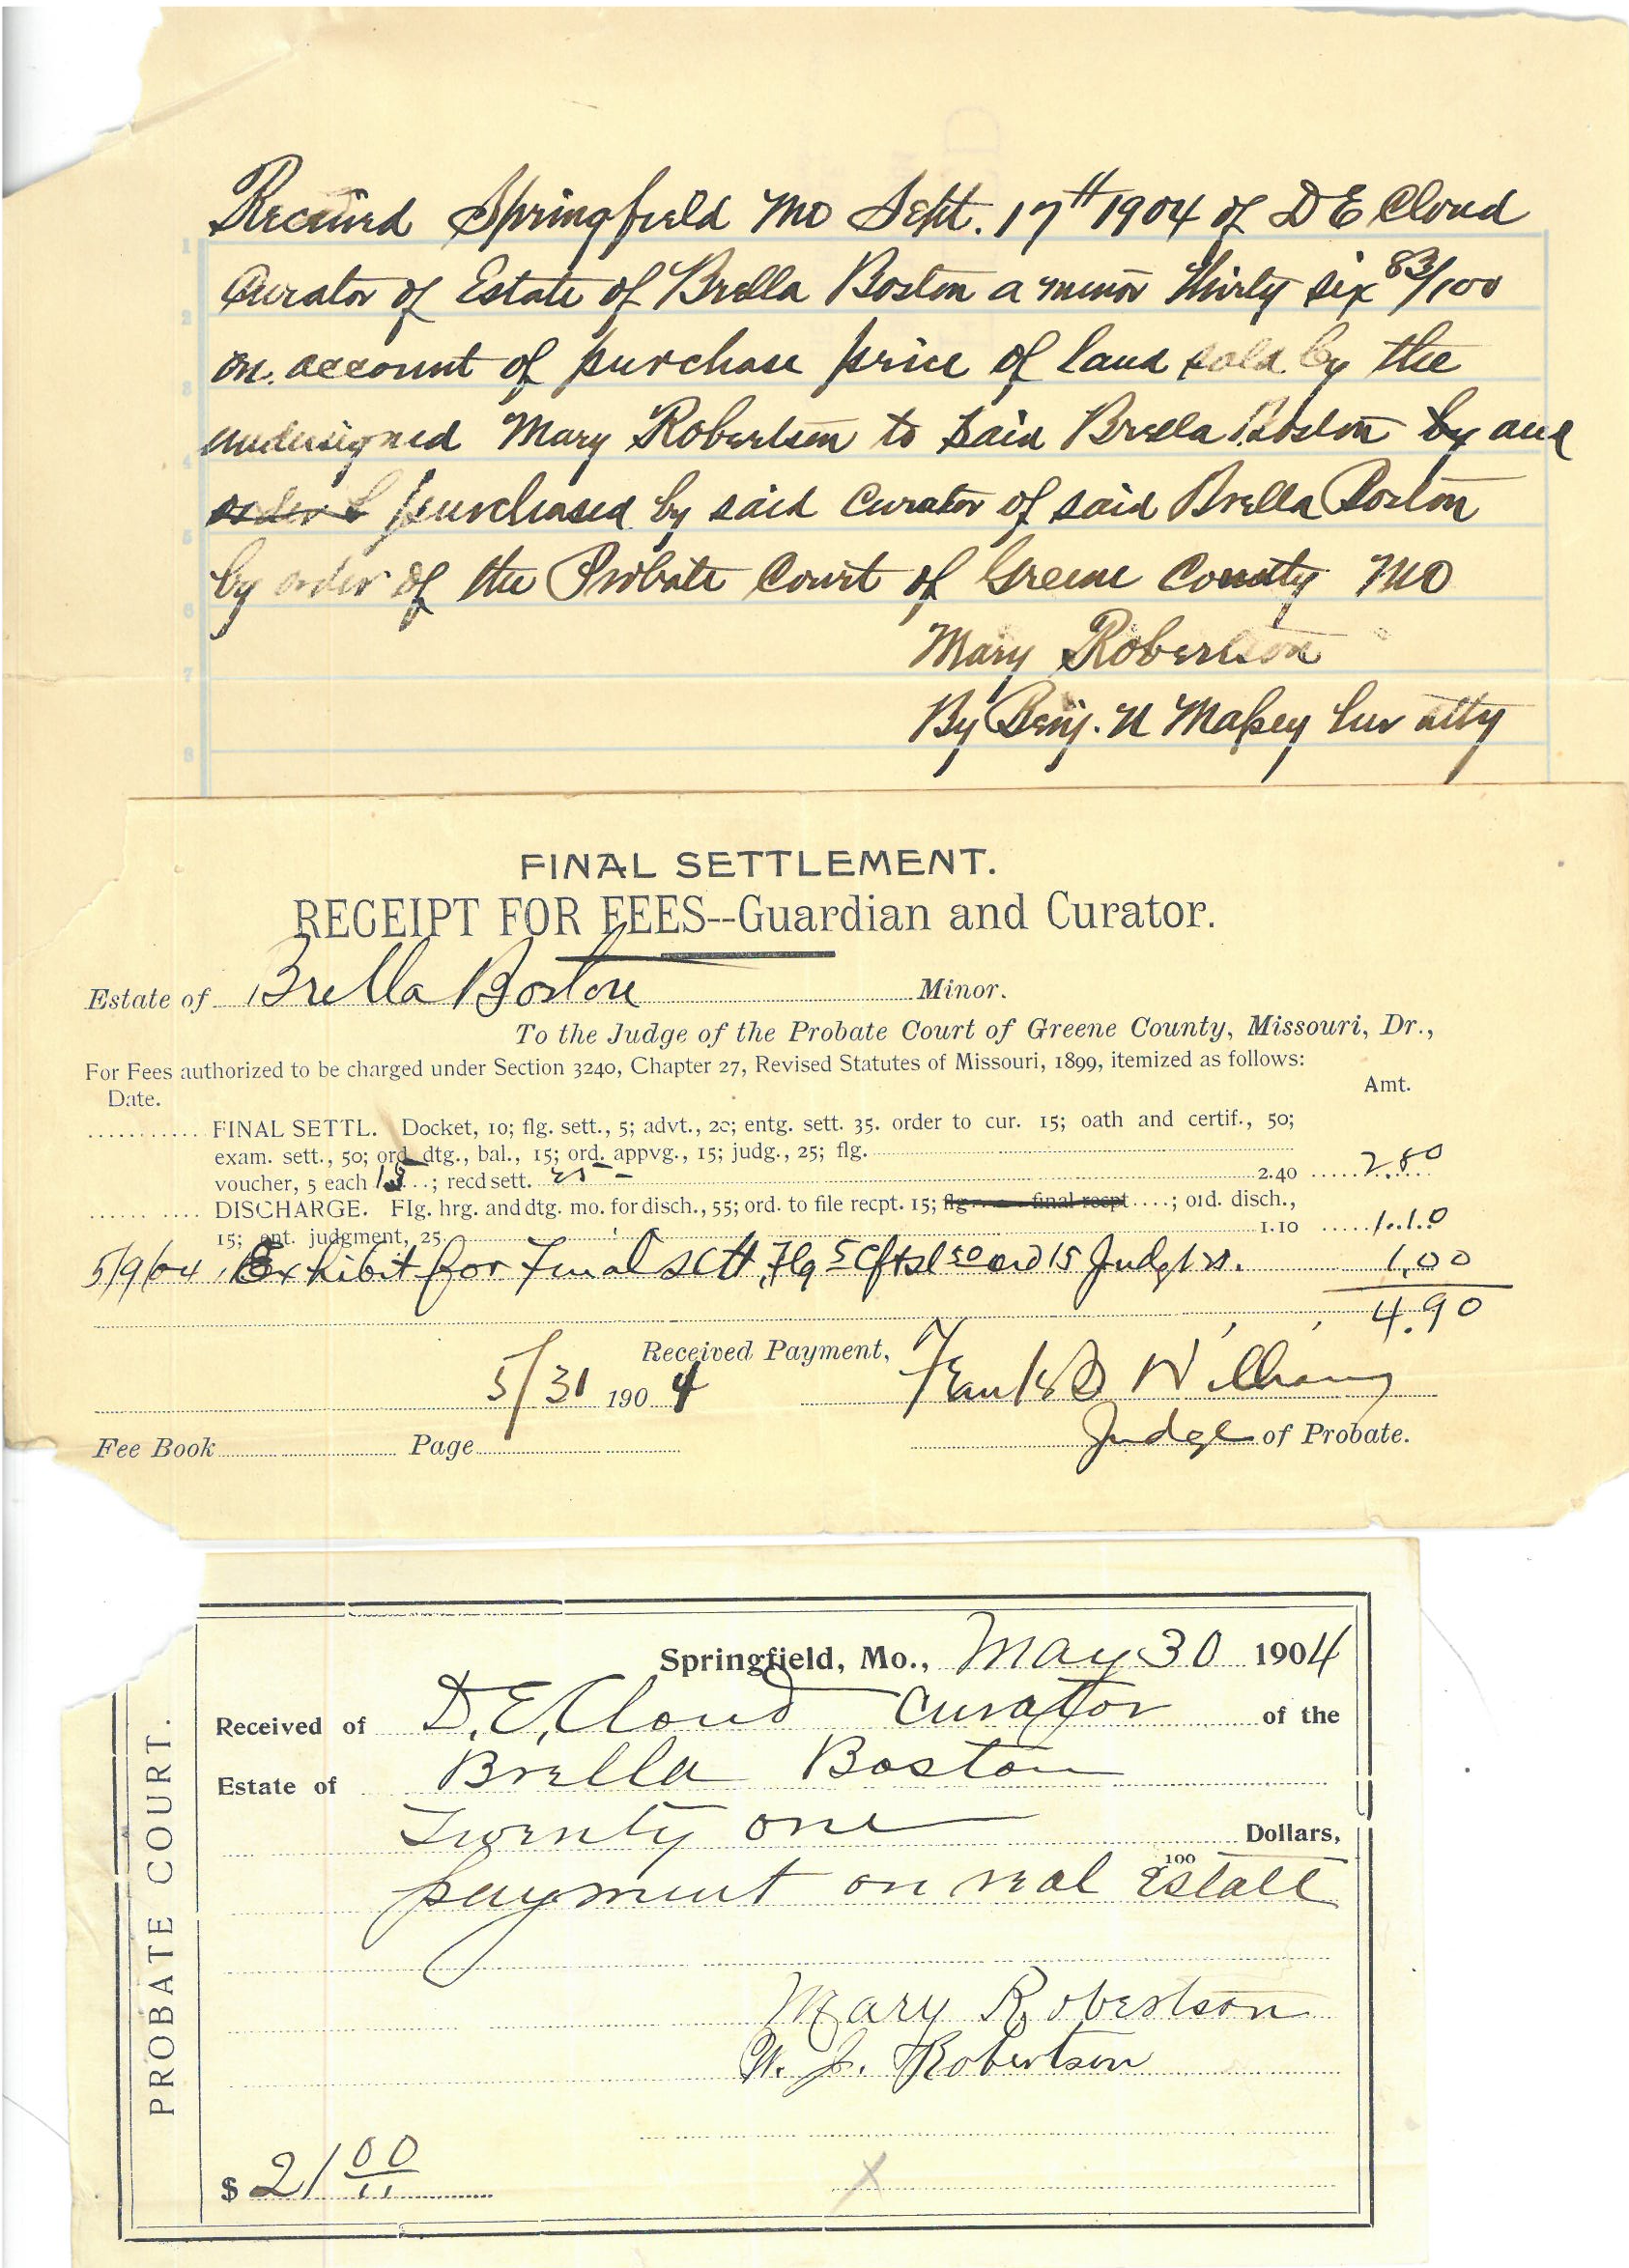 Received Springfield Mo Sept. 17th 1904 of D E Cloud
Curator of Estate of Brella Boston a minor thirty six 83/100
on account of purchase price of land sold by the
undersigned Mary Robertson to said Brella Boston by and
order b purchased by said curator of said Brella Boston
by order of the Probate Court of Greene County MO
Mary Robertson
By Benj. N Massey her atty
1
2
3
4
5
6
7
8
FINAL SETTLEMENT.
RECEIPT FOR FEES--Guardian and Curator.
Estate of Brella Boston Minor.
To the Judge of the Probate Court of Greene County, Missouri, Dr.,
For Fees authorized to be charged under Section 3240, Chapter 27, Revised Statutes of Missouri, 1899, itemized as follows:
Date. Amt.
FINAL SETTL. Docket, 10; flg. sett., 5; advt., 20; entg. sett. 35. order to cur. 15; oath and certif., 50;
exam. sett., 50; ord. dtg., bal., 15; ord. appvg., 15; judg., 25; flg.
voucher, 5 each 15; recd sett. 25 2.40 2.80
DISCHARGE. Flg. hrg. and dtg. mo. for disch., 55; ord. to file recpt. 15; flg final recpt ; old. disch.,
15; ent. judgment, 25 1.10 1.10
5/9/04 Exhibit for Final sett, Flg 5 50 ord 15 Judg 1.00
4.90
Received Payment,
5/31 1904 Frank Williams
Judge of Probate.
Fee Book Page
PROBATE COURT.
Springfield, Mo., May 30 1904
Received of D. E. Cloud Curator of the
Estate of Brella Boston
Twenty one Dollars,
100
payment on real Estate
Mary Robertson
W. J. Robertson
$ 21 00
X